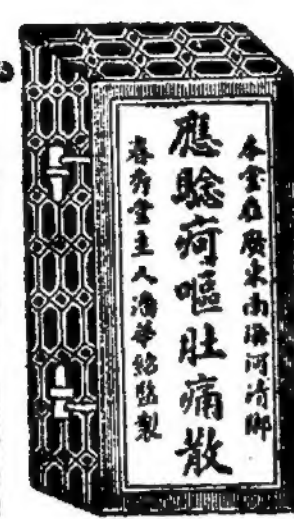 本堂在廣東南海河清鄉
應騐疴嘔肚痛散
堂主人潘華監製